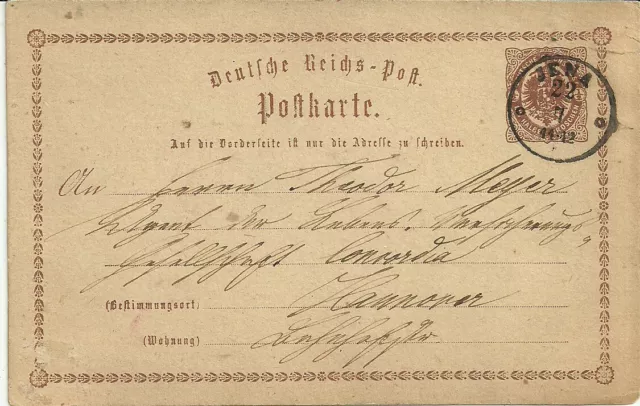 Deutsche Reichs-Post.
Postkarte.
JENA
22
7
11-12
Auf die Vorderseite ist nur die Adresse zu schreiben.
An Herrn Theodor Meyer
Agent der Lebens-Versicherungs
Gesellschaft Concordia
(Bestimmungsort) Hannover
(Wohnung) Bahnhofstr